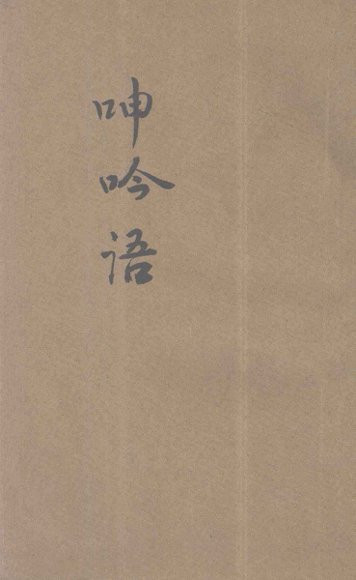 呻吟语